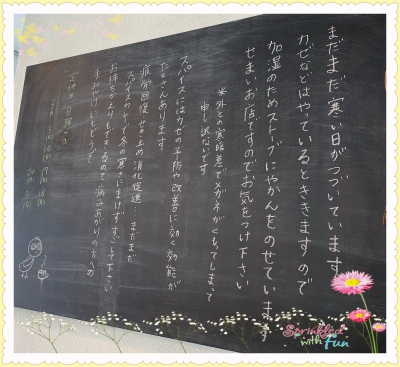 まだまだ寒い日がつづいています
カゼなどはやっているとききますので
加湿のためストーブにやかんをのせています
せまいお店ですのでお気をつけ下さい
※外との寒暖差でメガネがくもってしまって
申し訳ないです
スパイスにはカゼの予防や改善に効く効能が
たくさんあります
疲労回復 せき止め 消化促進… まだまだ
スパイスカレーで冬の寒さにまけずすごして下さい
お持ちかえりもできるので 病みあがりの方への
手みやげにもどうぞ
定休日
2月
Sprinkled
with Fun